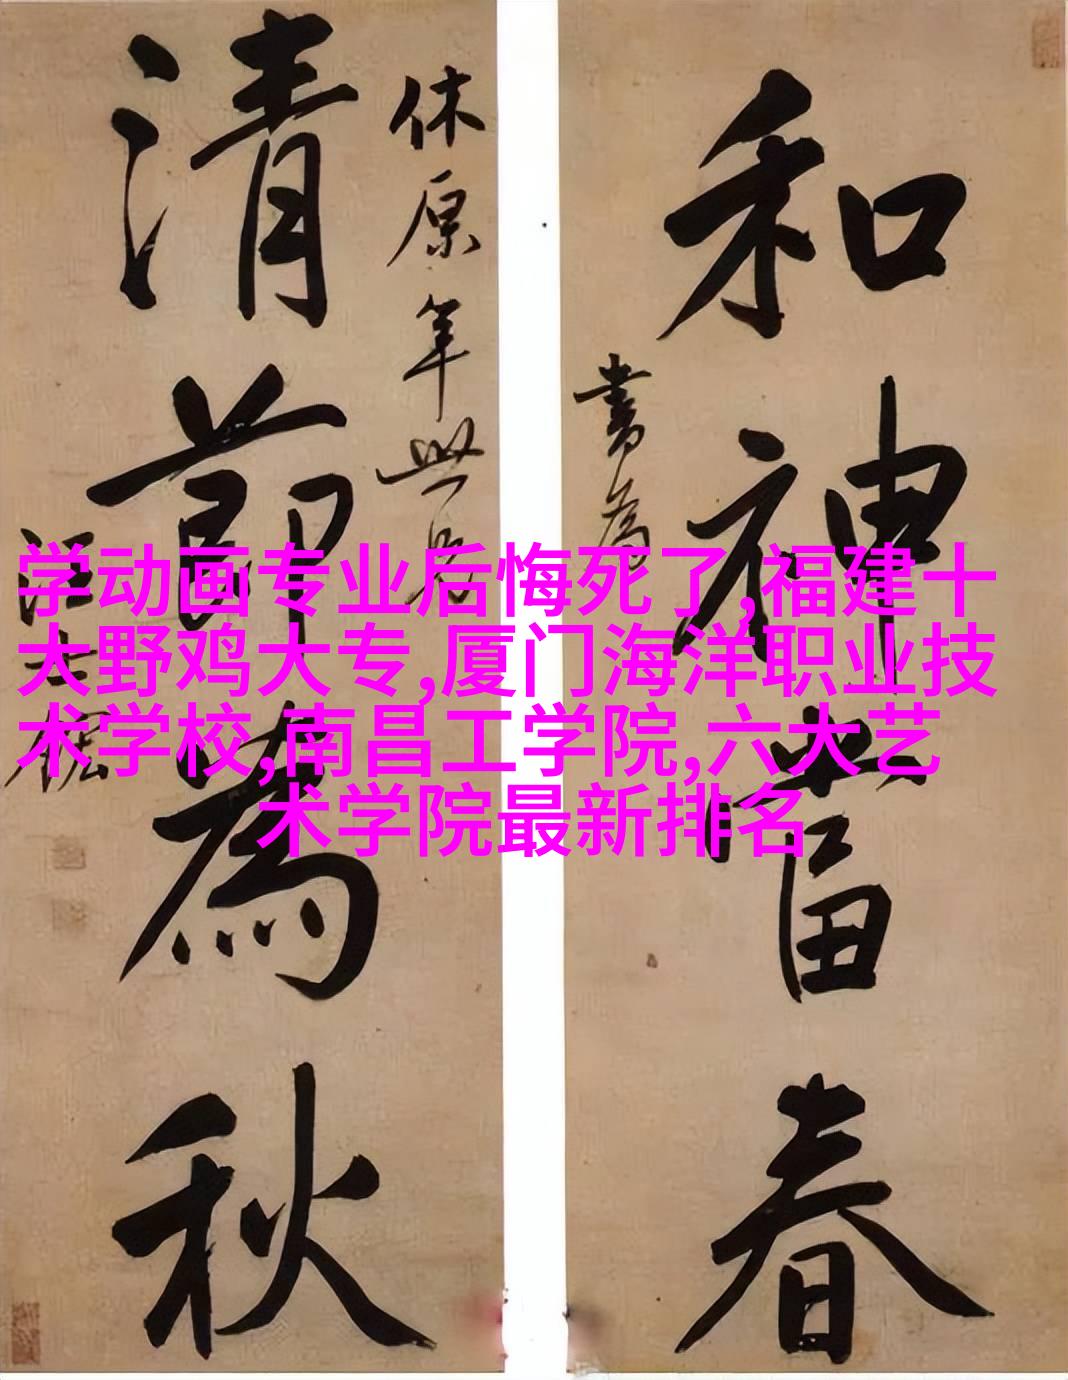 和神當春
書為
休原年世兄
清節為秋
汪士鋐
学动画专业后悔死了,福建十
大野鸡大专,厦门海洋职业技
术学校,南昌工学院,六大艺
术学院最新排名